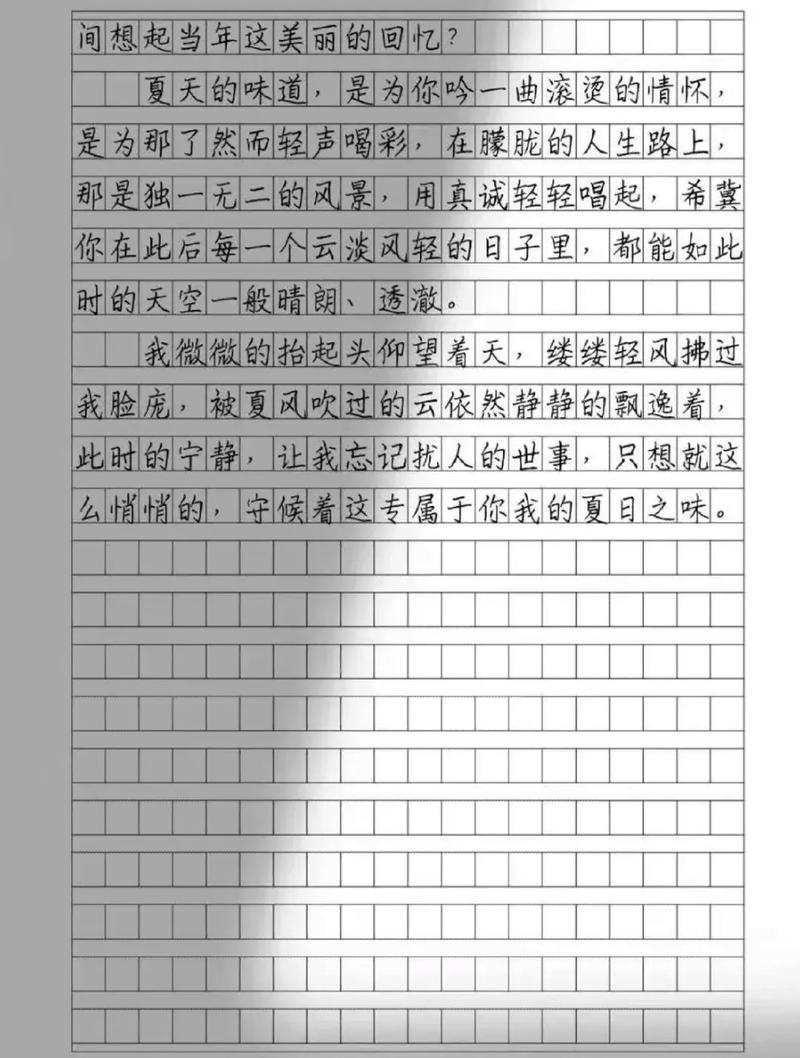 间想起当年这美丽的回忆？
夏天的味道，是为你吟一曲滚烫的情怀，
是为那了然而轻声喝彩，在朦胧的人生路上，
那是独一无二的风景，用真诚轻轻唱起，希冀
你在此后每一个云淡风轻的日子里，都能如此
时的天空一般晴朗、透澈。
我微微的抬起头仰望着天，缕缕轻风拂过
我脸庞，被夏风吹过的云依然静静的飘逸着，
此时的宁静，让我忘记扰人的世事，只想就这
么悄悄的，守候着这专属于你我的夏日之味。